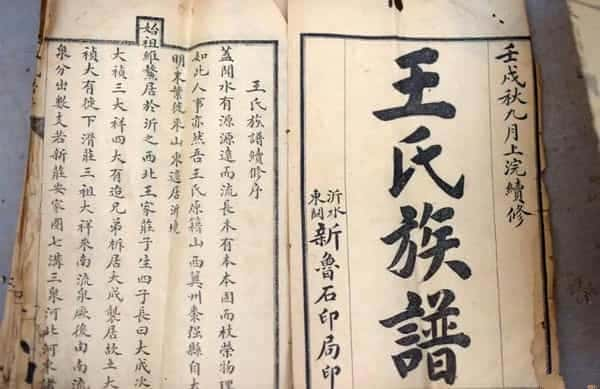 壬戌秋九月上浣續修
王氏族譜
沂水
東關
新魯石印局印
王氏族譜續修序
蓋聞水有源源遠而流長木有本本固而枝榮物理
如此人事亦然吾王氏原籍山西冀州棗强縣自大
明東葉來山東遷居沂境
始祖維鰲居於沂之西北王家莊子生四子長曰大成次
大禎三大祥四大有迨兄弟析居大成襲居故土大
禎大有徙下滑莊三祖大祥來南流泉厥後由南流
泉分出數支若新莊安家圈七溝三泉河北河東